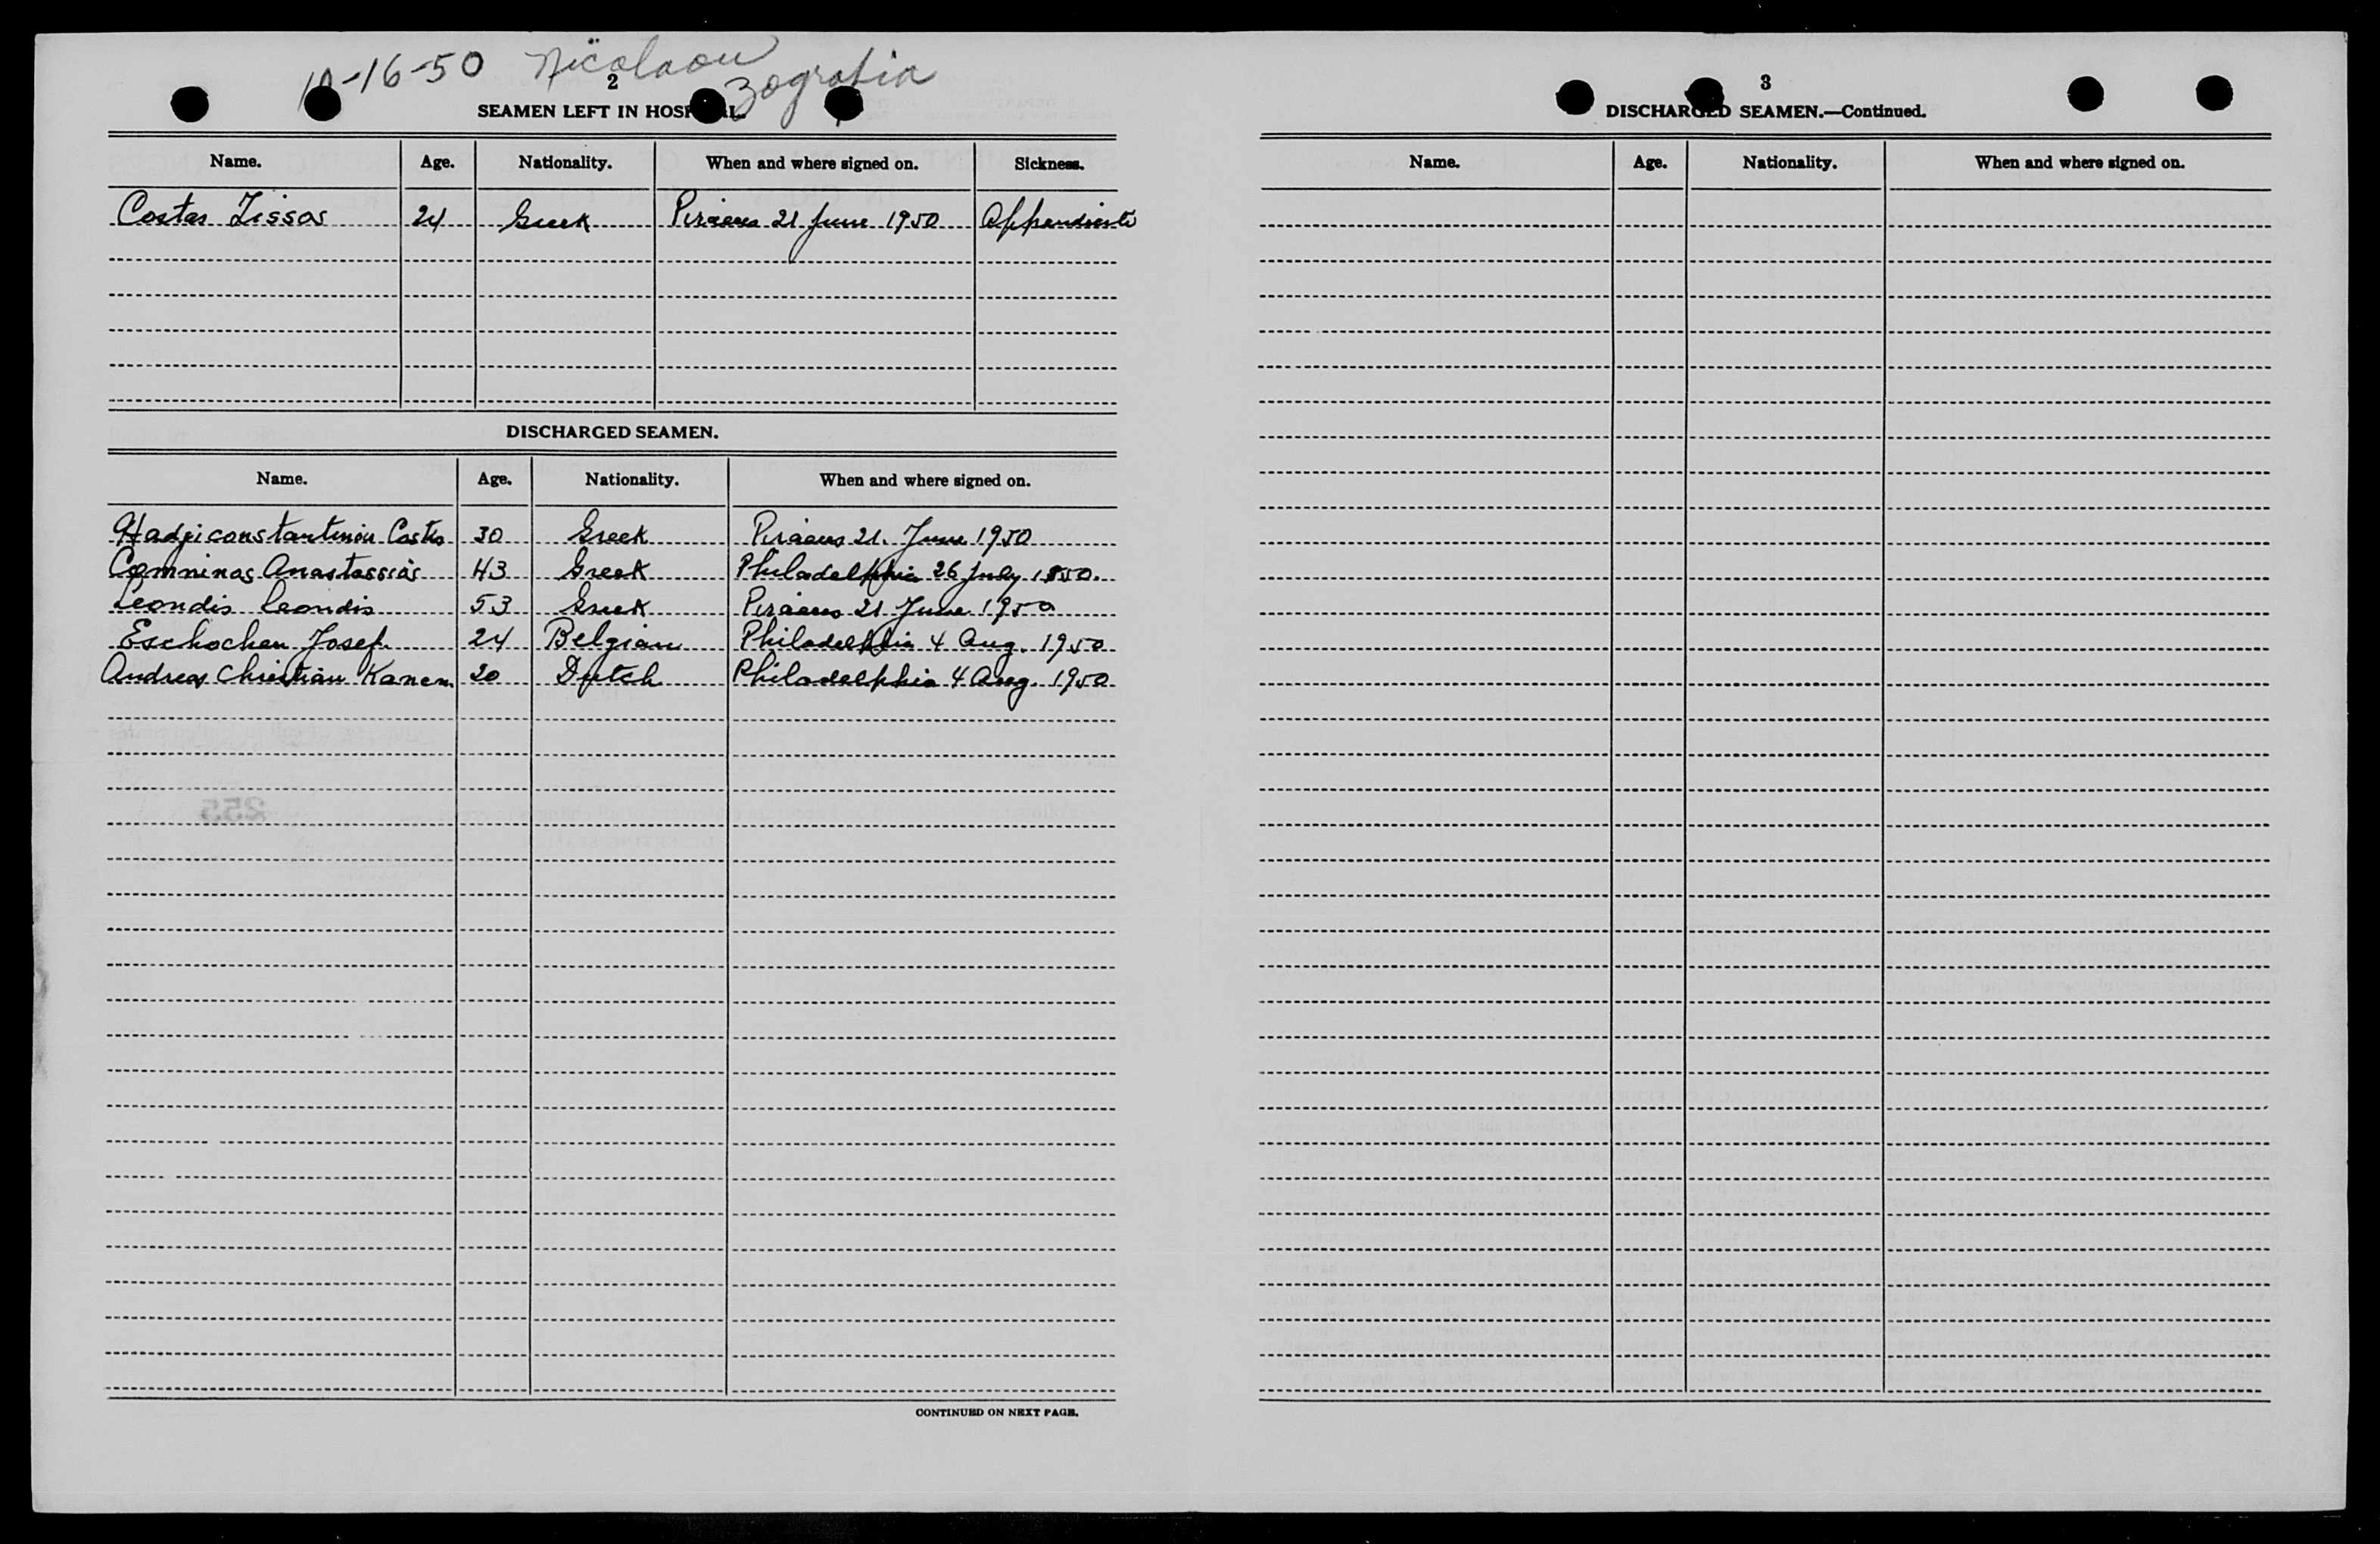 10-16-50 Nicolaou
Zografia
2
SEAMEN LEFT IN HOSPITAL.
Name. Age. Nationality. When and where signed on. Sickness.
Costas Zissos 24 Greek Piraeus 21 June 1950
DISCHARGED SEAMEN.
Name. Age. Nationality. When and where signed on.
Hadjiconstantinou Costas 30 Greek Piraeus 21. June 1950
Comninos Anastassios 43 Greek Philadelphia 26 July 1950.
Leondis Leondis 53 Greek Piraeus 21 June 1950
Eschochen Josef 24 Belgian Philadelphia 4 Aug. 1950
Andreas Christian Kanen 20 Dutch Philadelphia 4 Aug. 1950
CONTINUED ON NEXT PAGE.
3
DISCHARGED SEAMEN.—Continued.
Name. Age. Nationality. When and where signed on.